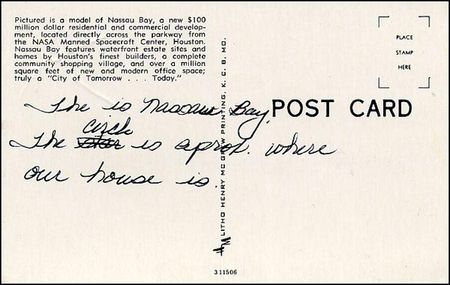 Pictured is a model of Nassau Bay, a new $100
million dollar residential and commercial develop-
ment, located directly across the parkway from
the NASA Manned Spacecraft Center, Houston.
Nassau Bay features waterfront estate sites and
homes by Houston's finest builders, a complete
community shopping village, and over a million
square feet of new and modern office space;
truly a "City of Tomorrow . . . Today."
PLACE
STAMP
HERE
POST CARD
The is Nassau Bay.
circle
The star is aprox. where
our house is.
LITHO HENRY McGREW PRINTING, K. C. 8, MO.
311506